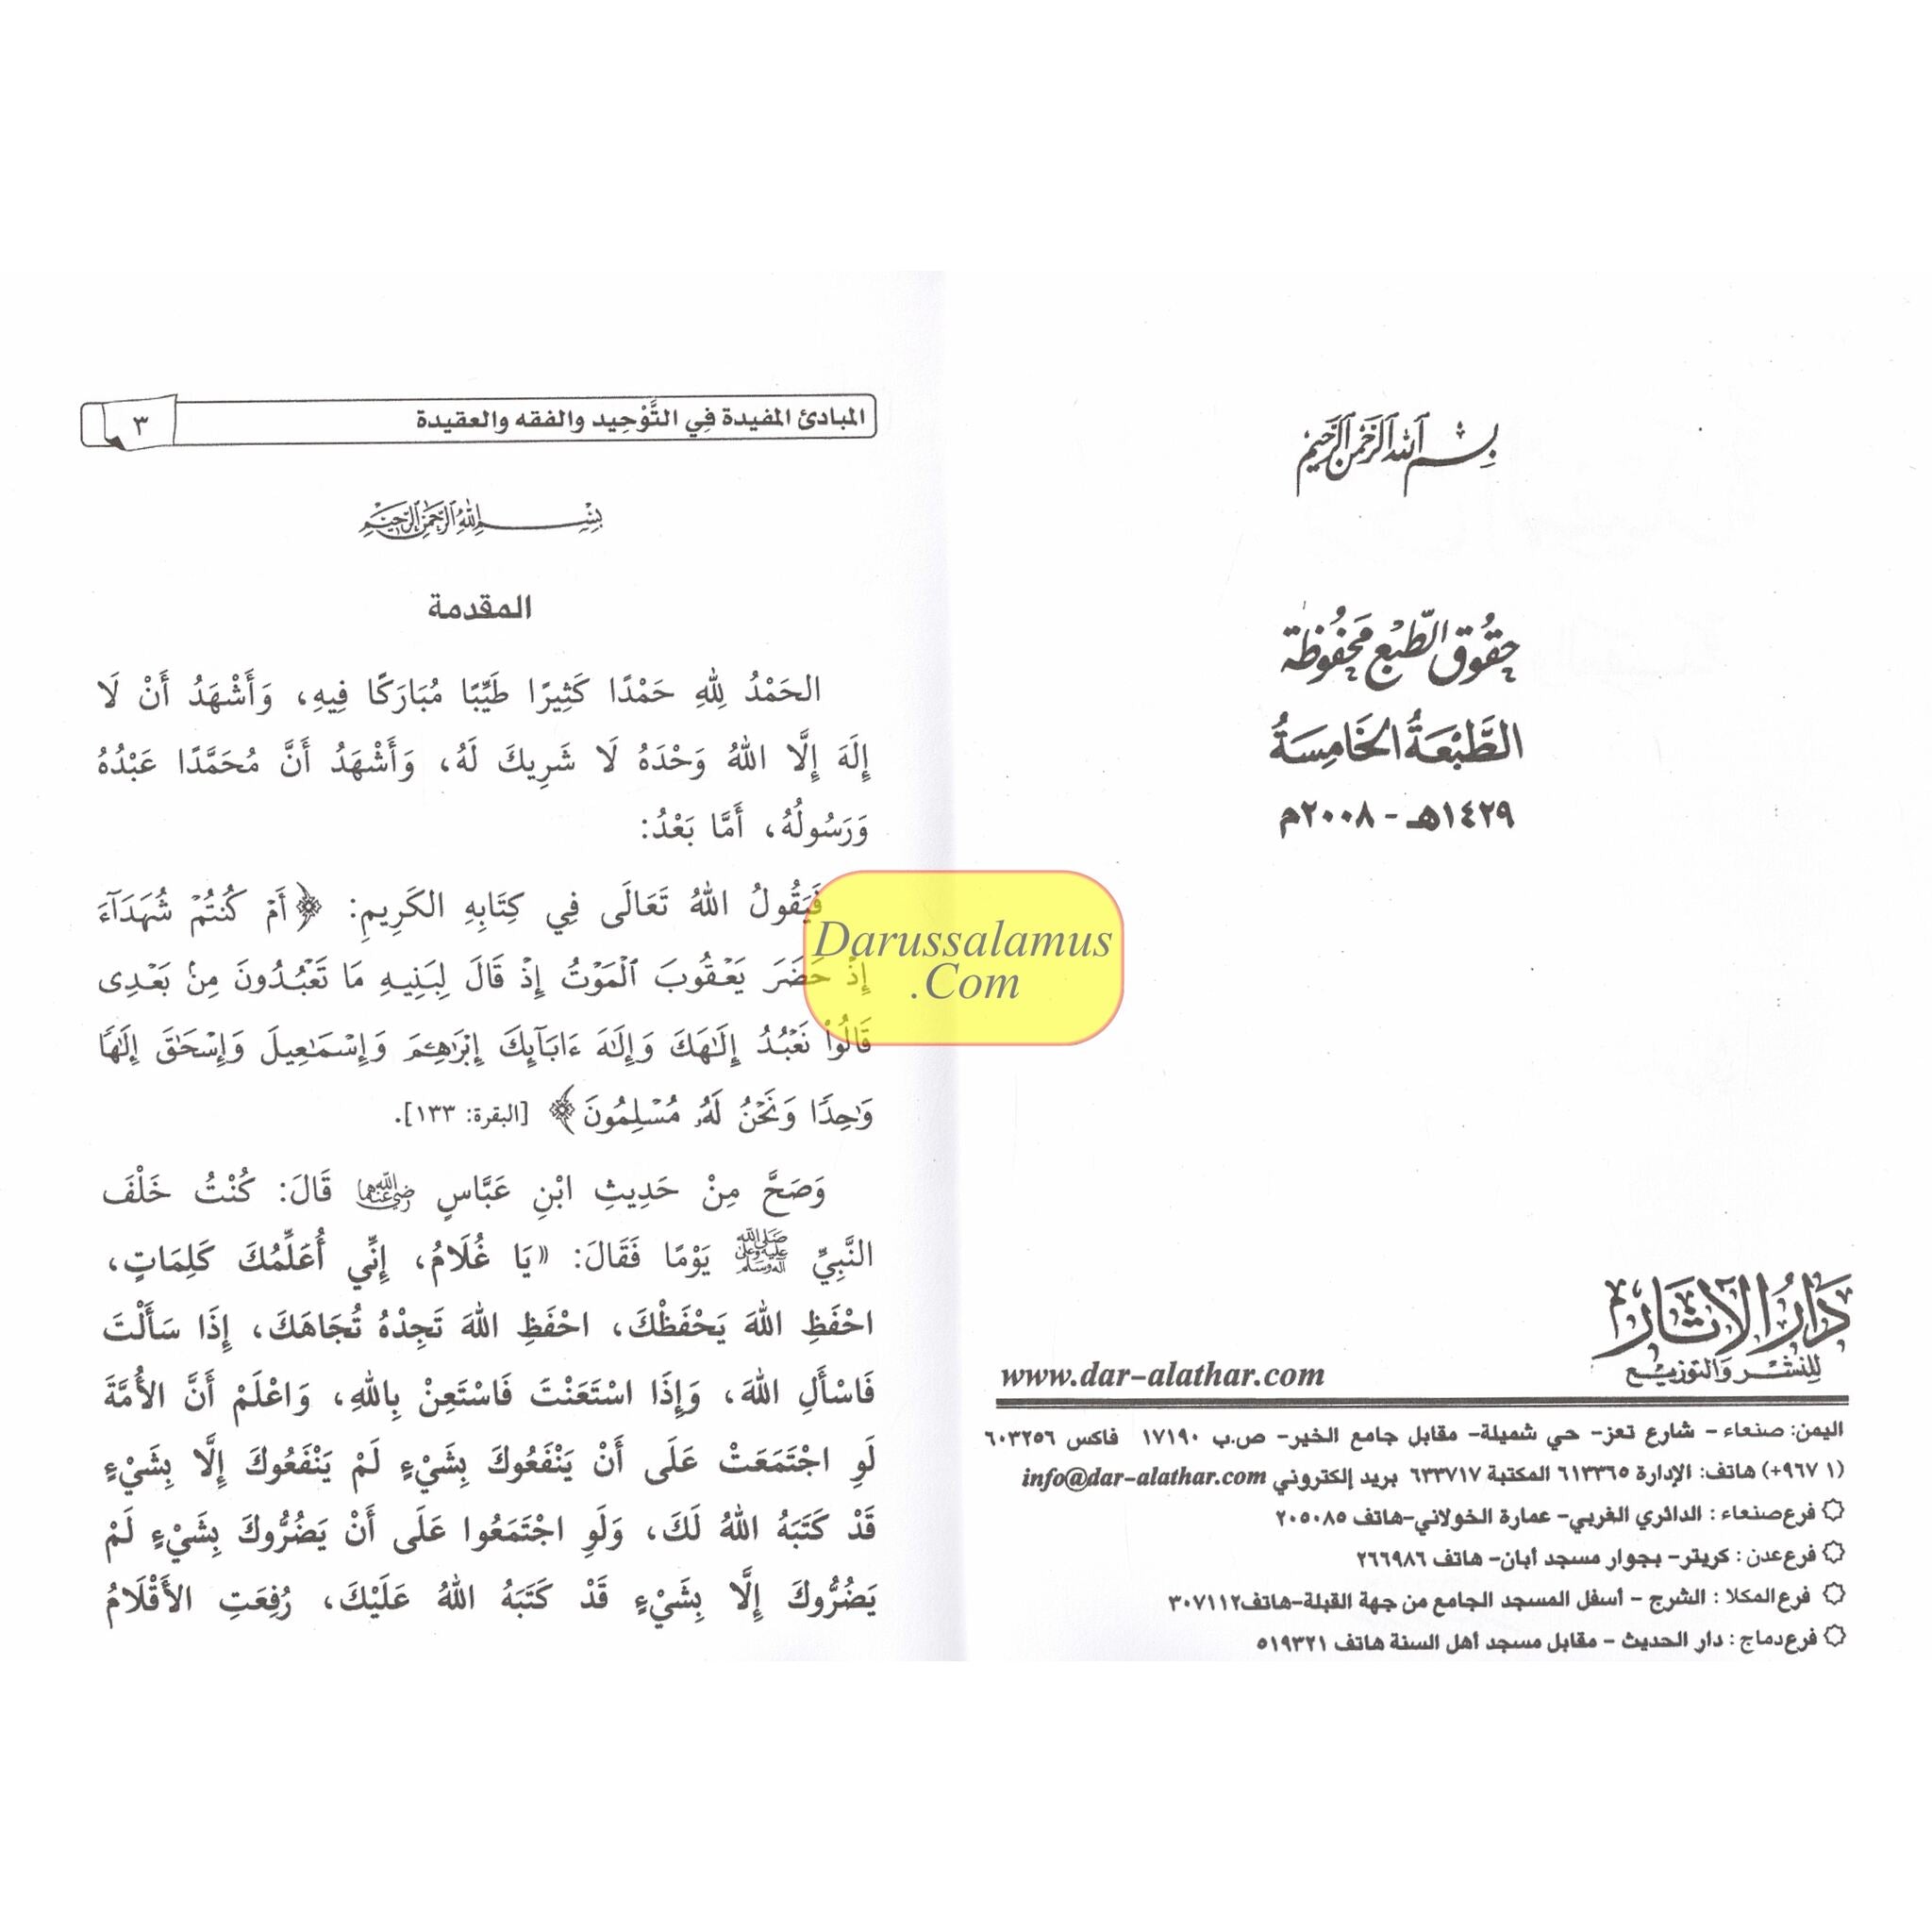 بسم الله الرحمن الرحيم
حقوق الطبع محفوظة
الطَّبْعَةُ الخَامِسَةُ
١٤٢٩هـ - ٢٠٠٨م
دَارُ الآثَار
للنشر والتوزيع
www.dar-alathar.com
اليمن: صنعاء - شارع تعز- حي شميلة- مقابل جامع الخير- ص.ب ١٧١٩٠ فاكس ٦٠٣٢٥٦
(٩٦٧ ١+) هاتف: الإدارة ٦١٣٣٦٥ المكتبة ٦٣٣٧١٧ بريد إلكتروني info@dar-alathar.com
فرع صنعاء : الدائري الغربي- عمارة الخولاني-هاتف ٢٠٥٠٨٥
فرع عدن : كريتر- بجوار مسجد أبان- هاتف ٢٦٦٩٨٦
فرع المكلا : الشرج - أسفل المسجد الجامع من جهة القبلة-هاتف ٣٠٧١١٢
فرع دماج : دار الحديث - مقابل مسجد أهل السنة هاتف ٥١٩٣٢١
المبادئ المفيدة فِي التَّوْحِيد والفقه والعقيدة ٣
بسم الله الرحمن الرحيم
المقدمة
الحَمْدُ لِلَّهِ حَمْدًا كَثِيرًا طَيِّبًا مُبَارَكًا فِيهِ، وَأَشْهَدُ أَنْ لَا
إِلَهَ إِلَّا اللهُ وَحْدَهُ لَا شَرِيكَ لَهُ، وَأَشْهَدُ أَنَّ مُحَمَّدًا عَبْدُهُ
وَرَسُولُهُ، أَمَّا بَعْدُ:
فَيَقُولُ اللهُ تَعَالَى فِي كِتَابِهِ الكَرِيمِ: ﴿أَمْ كُنتُمْ شُهَدَآءَ
إِذْ حَضَرَ يَعْقُوبَ ٱلْمَوْتُ إِذْ قَالَ لِبَنِيهِ مَا تَعْبُدُونَ مِنۢ بَعْدِى
قَالُوا۟ نَعْبُدُ إِلَـٰهَكَ وَإِلَـٰهَ ءَابَآئِكَ إِبْرَٰهِـۧمَ وَإِسْمَـٰعِيلَ وَإِسْحَـٰقَ إِلَـٰهًا
وَٰحِدًا وَنَحْنُ لَهُۥ مُسْلِمُونَ﴾ [البقرة: ١٣٣].
وَصَحَّ مِنْ حَدِيثِ ابْنِ عَبَّاسٍ رضي الله عنهما قَالَ: كُنْتُ خَلْفَ
النَّبِيِّ صلى الله عليه وعلى آله وسلم يَوْمًا فَقَالَ: «يَا غُلَامُ، إِنِّي أُعَلِّمُكَ كَلِمَاتٍ،
احْفَظِ اللهَ يَحْفَظْكَ، احْفَظِ اللهَ تَجِدْهُ تُجَاهَكَ، إِذَا سَأَلْتَ
فَاسْأَلِ اللهَ، وَإِذَا اسْتَعَنْتَ فَاسْتَعِنْ بِاللهِ، وَاعْلَمْ أَنَّ الأُمَّةَ
لَوِ اجْتَمَعَتْ عَلَى أَنْ يَنْفَعُوكَ بِشَيْءٍ لَمْ يَنْفَعُوكَ إِلَّا بِشَيْءٍ
قَدْ كَتَبَهُ اللهُ لَكَ، وَلَوِ اجْتَمَعُوا عَلَى أَنْ يَضُرُّوكَ بِشَيْءٍ لَمْ
يَضُرُّوكَ إِلَّا بِشَيْءٍ قَدْ كَتَبَهُ اللهُ عَلَيْكَ، رُفِعَتِ الأَقْلَامُ
Darussalamus
.Com